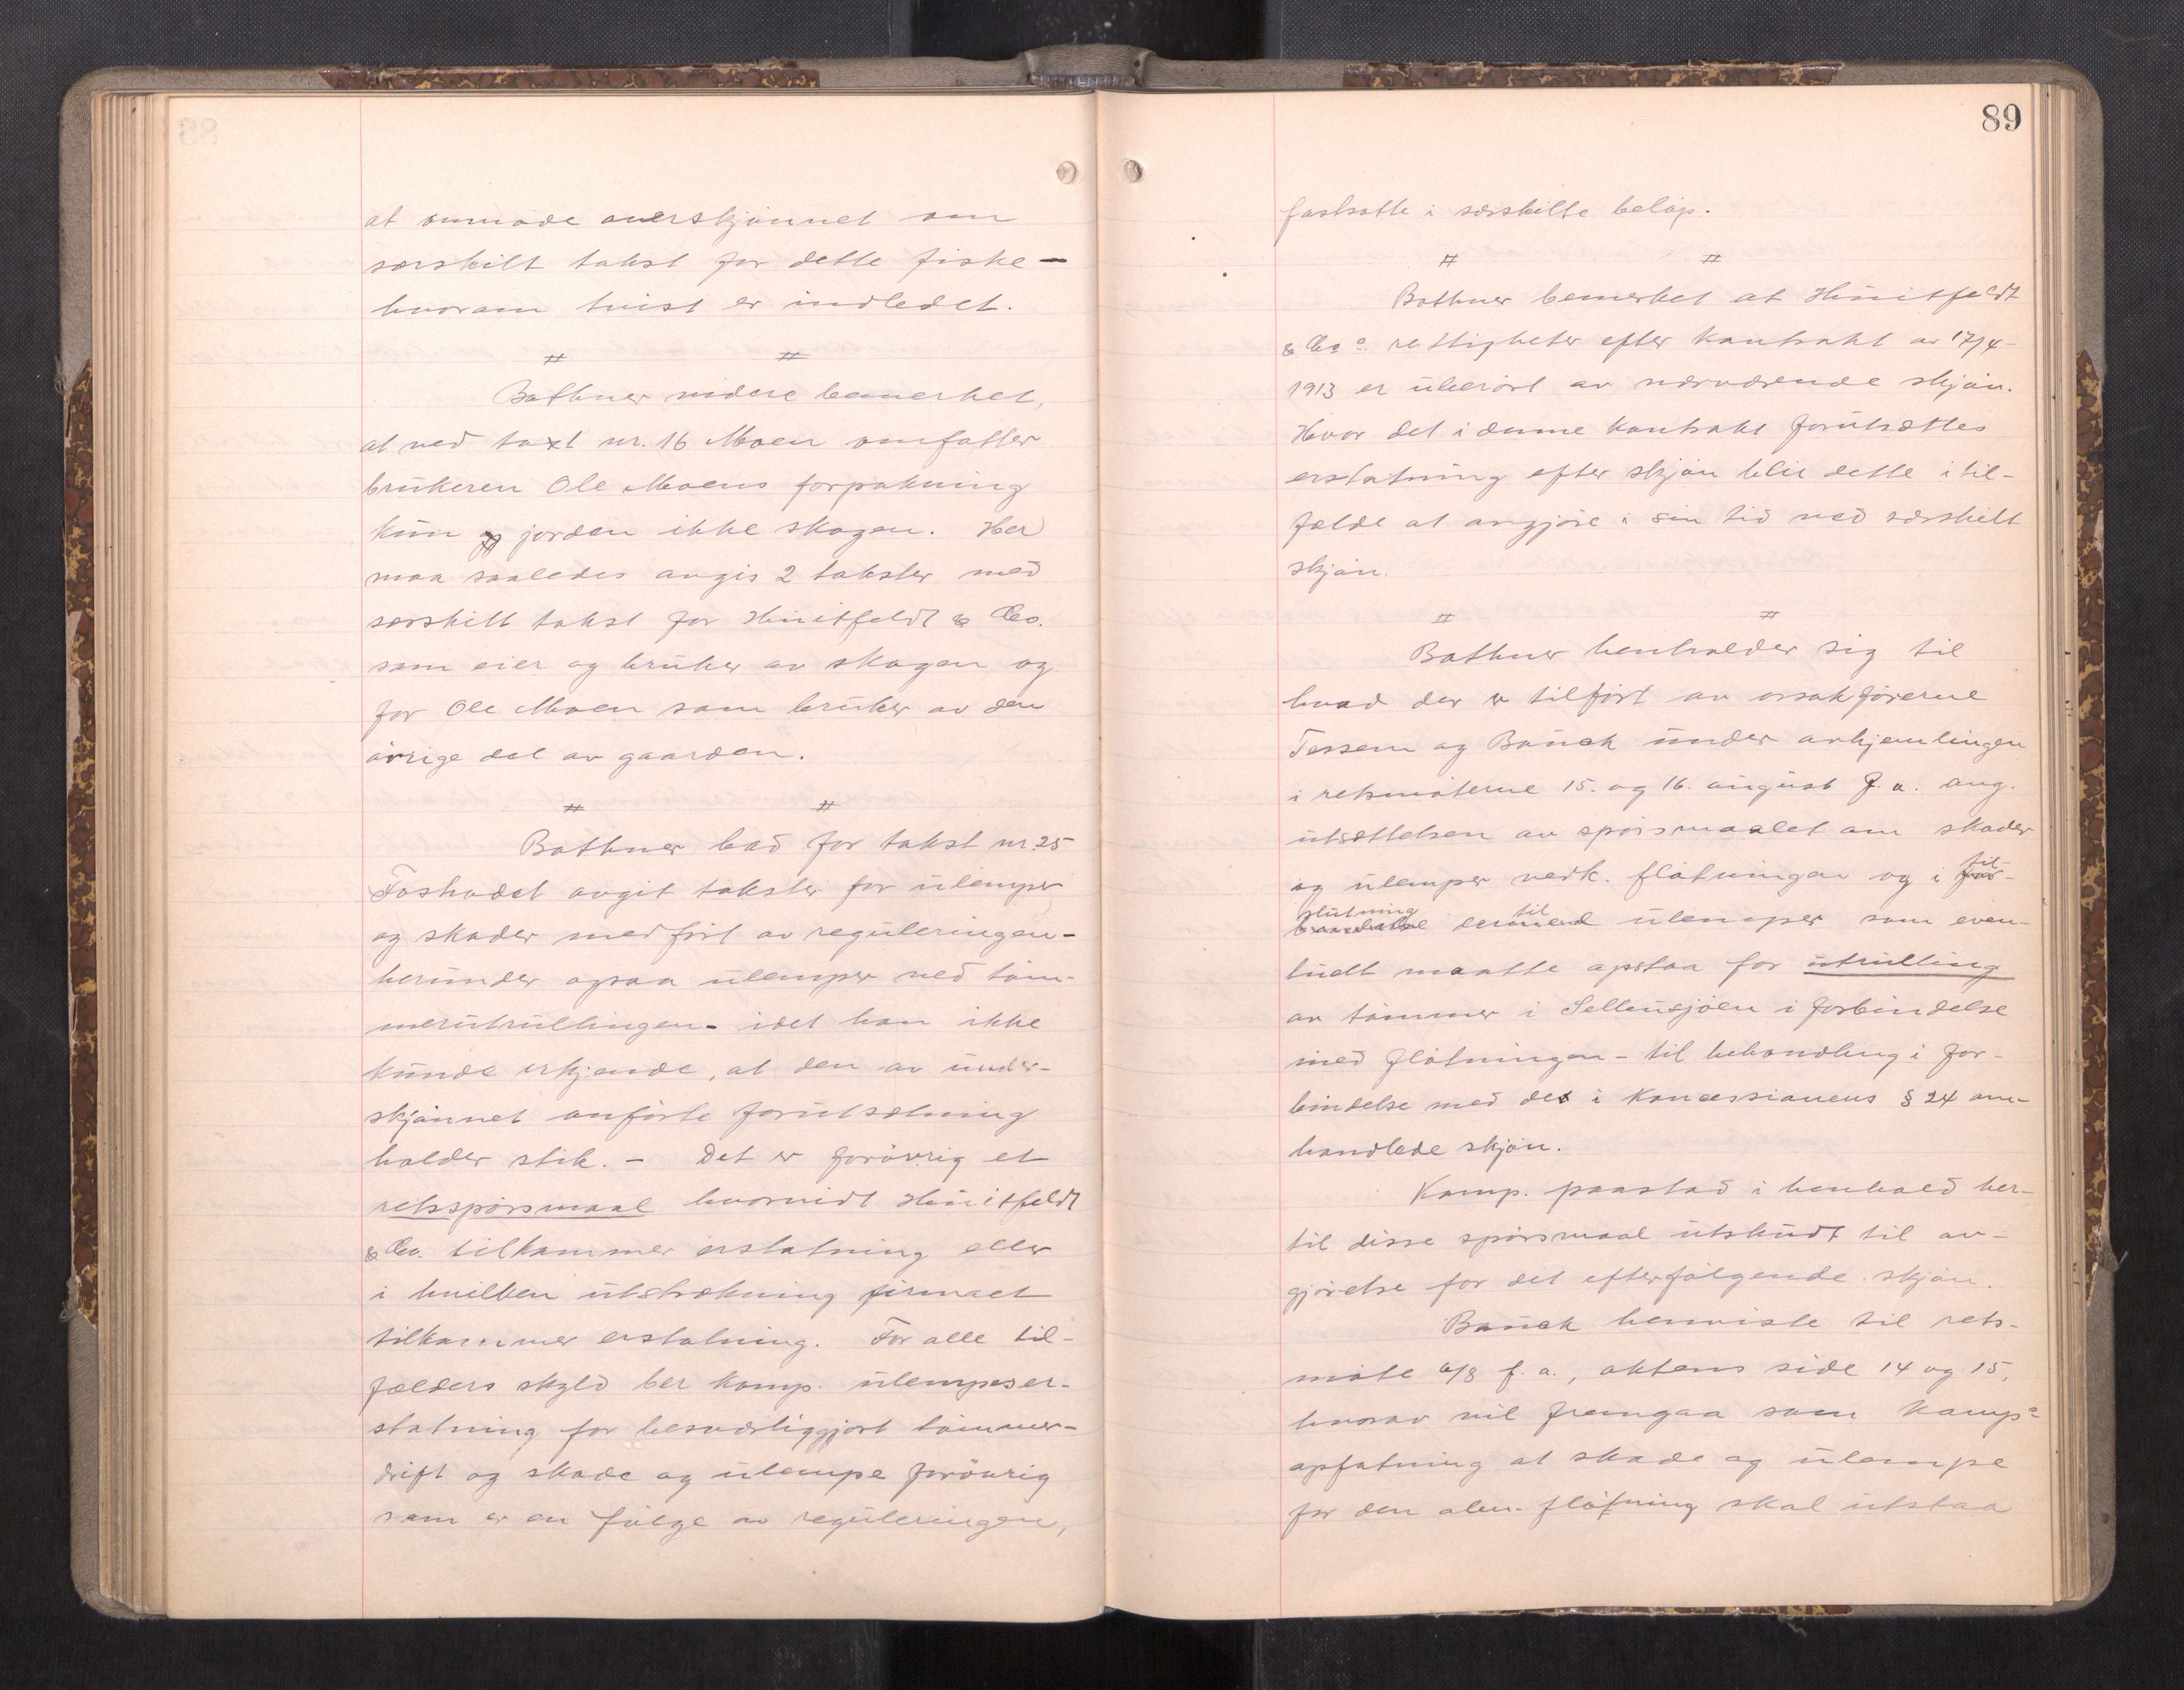 at anmode overskjønnet om
særskilt takst for dette fiske –
hvorom tvist er indledet.
# #
Bothner videre bemerket,
at ved taxt nr. 16 Moen omfatter
brukeren Ole Moens forpakning
kun jorden ikke skogen. Her
maa saaledes avgis 2 takster med
særskilt takst for Huitfeldt & Co.
som eier og bruker av skogen og
for Ole Moen som bruker av den
øvrige del av gaarden.
# #
Bothner bad for takst nr. 25
Foshodet avgit takster for ulemper
og skader medført av reguleringen –
herunder ogsaa ulemper ved tøm-
merutrullingen – idet han ikke
kunde erkjende, at den av under-
skjønnet anførte forutsætning
holder stik. – Det er forøvrig et
retsspørsmaal hvorvidt Huitfeldt
& Co. tilkommer erstatning eller
i hvilken utstrækning firmaet
tilkommer erstatning. For alle til-
fælders skyld ber komp. ulempeser-
statning for besværliggjort tømmer-
drift og skade og ulempe forøvrig
som er en følge av reguleringen,
89
fastsatte i særskilte beløp.
# #
Bothner bemerket at Huitfeldt
& Cos. rettigheter efter kontrakt av 17/4-
1913 er uberørt av nærværende skjøn.
Hvor det i denne kontrakt forutsættes
erstatning efter skjøn blir dette i til-
fælde at avgjøre i sin tid ved særskilt
skjøn.
# #
Bothner henholder sig til
hvad der er tilført av orsakførerne
Tessem og Bauck under avhjemlingen
i retsmøterne 15. og 16. august f. a. ang.
utsættelsen av spørsmaalet om skader
og ulemper vedk. fløtningen og i til-
slutning dertil ulemper som even-
tuelt maatte opstaa for utrulling
av tømmer i Sellensjøen i forbindelse
med fløtningen – til behandling i for-
bindelse med det i koncessionens § 24 om-
handlede skjøn.
Komp. paastod i henhold her-
til disse spørsmaal utskudt til av-
gjørelse for det efterfølgende skjøn.
Bauck henviste til rets-
møte 6/8 f. a., aktens side 14 og 15,
hvorav vil fremgaa som komps
opfatning at skade og ulempe
for den alm. fløtning skal utstaa